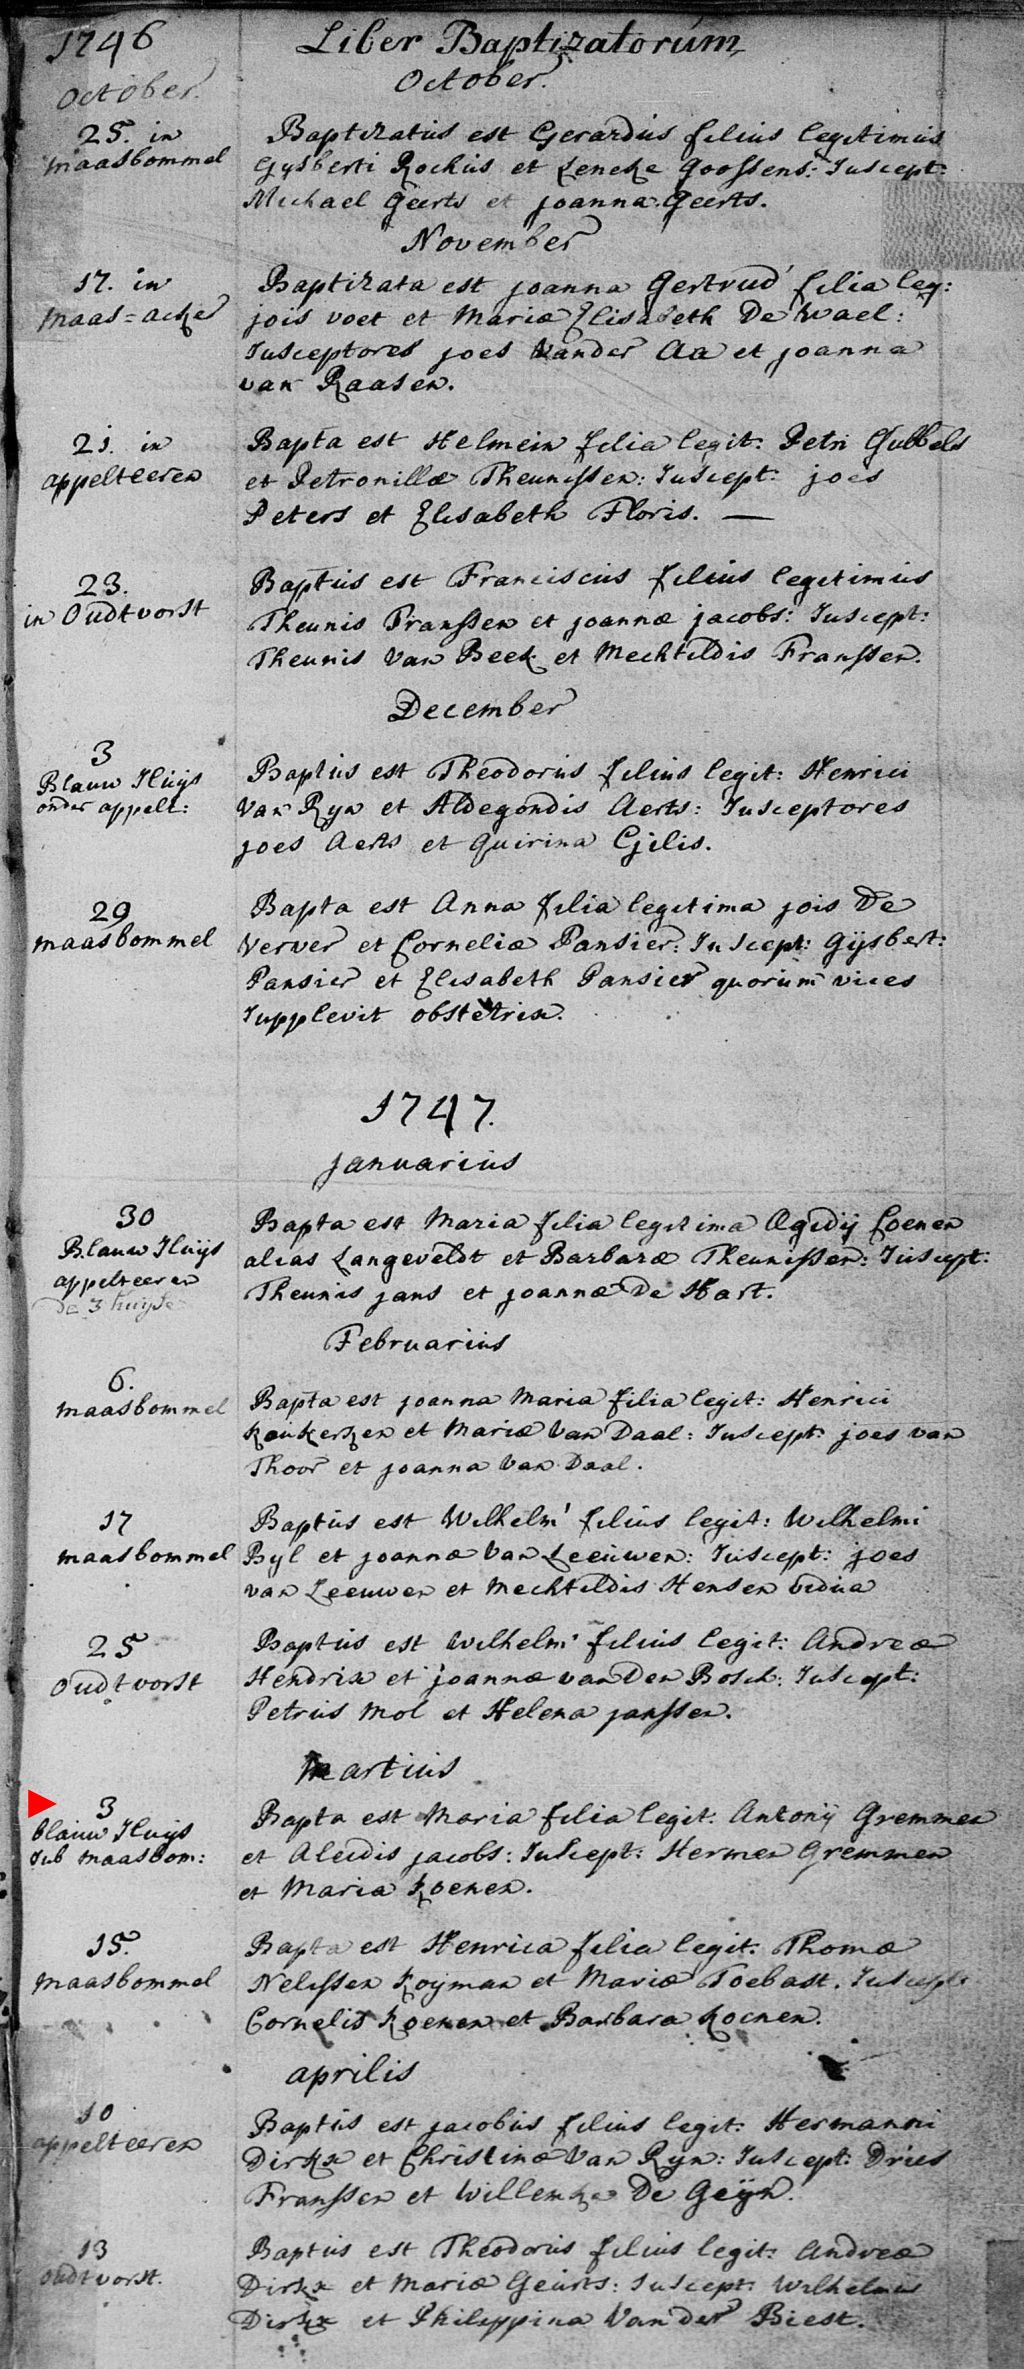 1746 Liber Baptizatorum
October. October.
25. in Baptizatus est Gerardus filius legitimus
maasbommel Gysberti Rochus et Leneke Goossens: Suscept:
Michael Geerts et joanna Geerts.
November
17. in Baptizata est joanna Gertrud' filia leg:
maas=acker jois voet et Mariæ Elisabeth De Wael:
Susceptores joes Vander Aa et joanna
van Raasen.
21. in Bapta est Helmein filia legit: Petri Gubbels
appelteeren et Petronillæ Theunissen: Suscept: joes
Peters et Elisabeth Floris. —
23. Baptus est Franciscus filius legitimus
in Oudtvorst Theunis Franssen et joannæ jacobs: Suscept:
Theunis Van Beek et Mechtildis Franssen.
December
3 Baptus est Theodorus filius legit: Henrici
Blauw Huys Van Ryn et Aldegondis Aerts: Susceptores
onder appelt: joes Aerts et Quirina Gjilis.
29 Bapta est Anna filia legitima jois De
maasbommel Verver et Corneliæ Pansier: Suscept: Gijsbert:
Pansier et Elisabeth Pansier quorum vices
Supplevit obstetrix.
1747.
januarius
30 Bapta est Maria filia legitima Ægidij Coenen
Blauw Huijs alias Langeveldt et Barbaræ Theunissen: Suscept:
appelteeren Theunis jans et joannæ De Hart.
de 3 huijse
Februarius
6. Bapta est joanna Maria filia legit: Henrici
maasbommel Koukerken et Mariæ Van Daal: Suscept: joes van
Thoor et joanna Van Daal.
17 Baptus est Wilhelm' filius legit: Wilhelmi
maasbommel Byl et joannæ Van Leeuwen: Suscept: joes
van Leeuwen et Mechtildis Hensen vidua
25 Baptus est Wilhelm' filius legit: Andreæ
Oudtvorst Hendrix et joannæ vanden Bosch: Suscept:
Petrus Mol et Helena janssen.
Martius
3 Bapta est Maria filia legit: Antonij Gremmen
blauw Huys et Aleidis jacobs: Suscept: Hermen Gremmen
sub maasbom: et Maria Koenen.
15. Bapta est Henrica filia legit: Thomæ
maasbommel Nelissen Kojman et Mariæ Toebast. Suscept:
Cornelis Koenen et Barbara Koenen.
aprilis
10 Baptus est jacobus filius legit: Hermanni
appelteeren Dirkx et Christinæ Van Ryn: Suscept: Dries
Franssen et Willemke De Geyn.
13 Baptus est Theodorus filius legit: Andreæ
oudtvorst. Dirkx et Mariæ Geurts: Suscept: Wilhelmus
Dirkx et Philippina Vander Biest.